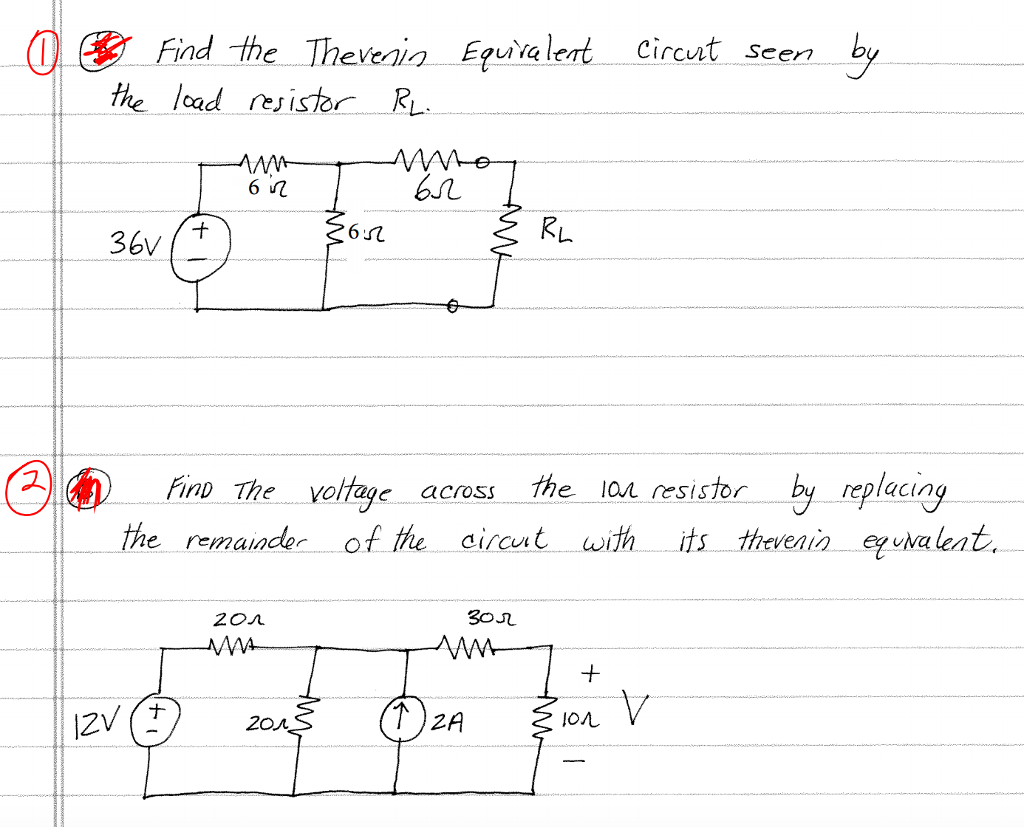 1 Find the Thevenin Equivalent Circuit seen by
the load resistor RL.
6Ω
6Ω
36V
+
−
6Ω
RL
2 FIND THE voltage across the 10Ω resistor by replacing
the remainder of the circuit with its thevenin equivalent.
20Ω
30Ω
12V
+
−
20Ω
2A
10Ω
+
V
−